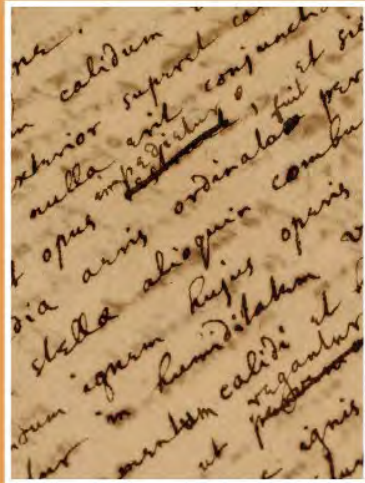 ne.
calidum
xterior superet ca
nulla erit conjunctio
opus impedietur, fuit et sic
dia aeris ordinata per
stella alioquin combu
rum ignem hujus operis
tur in humiditatem v
mentum calidi et h
ut regantur
ignis
tur